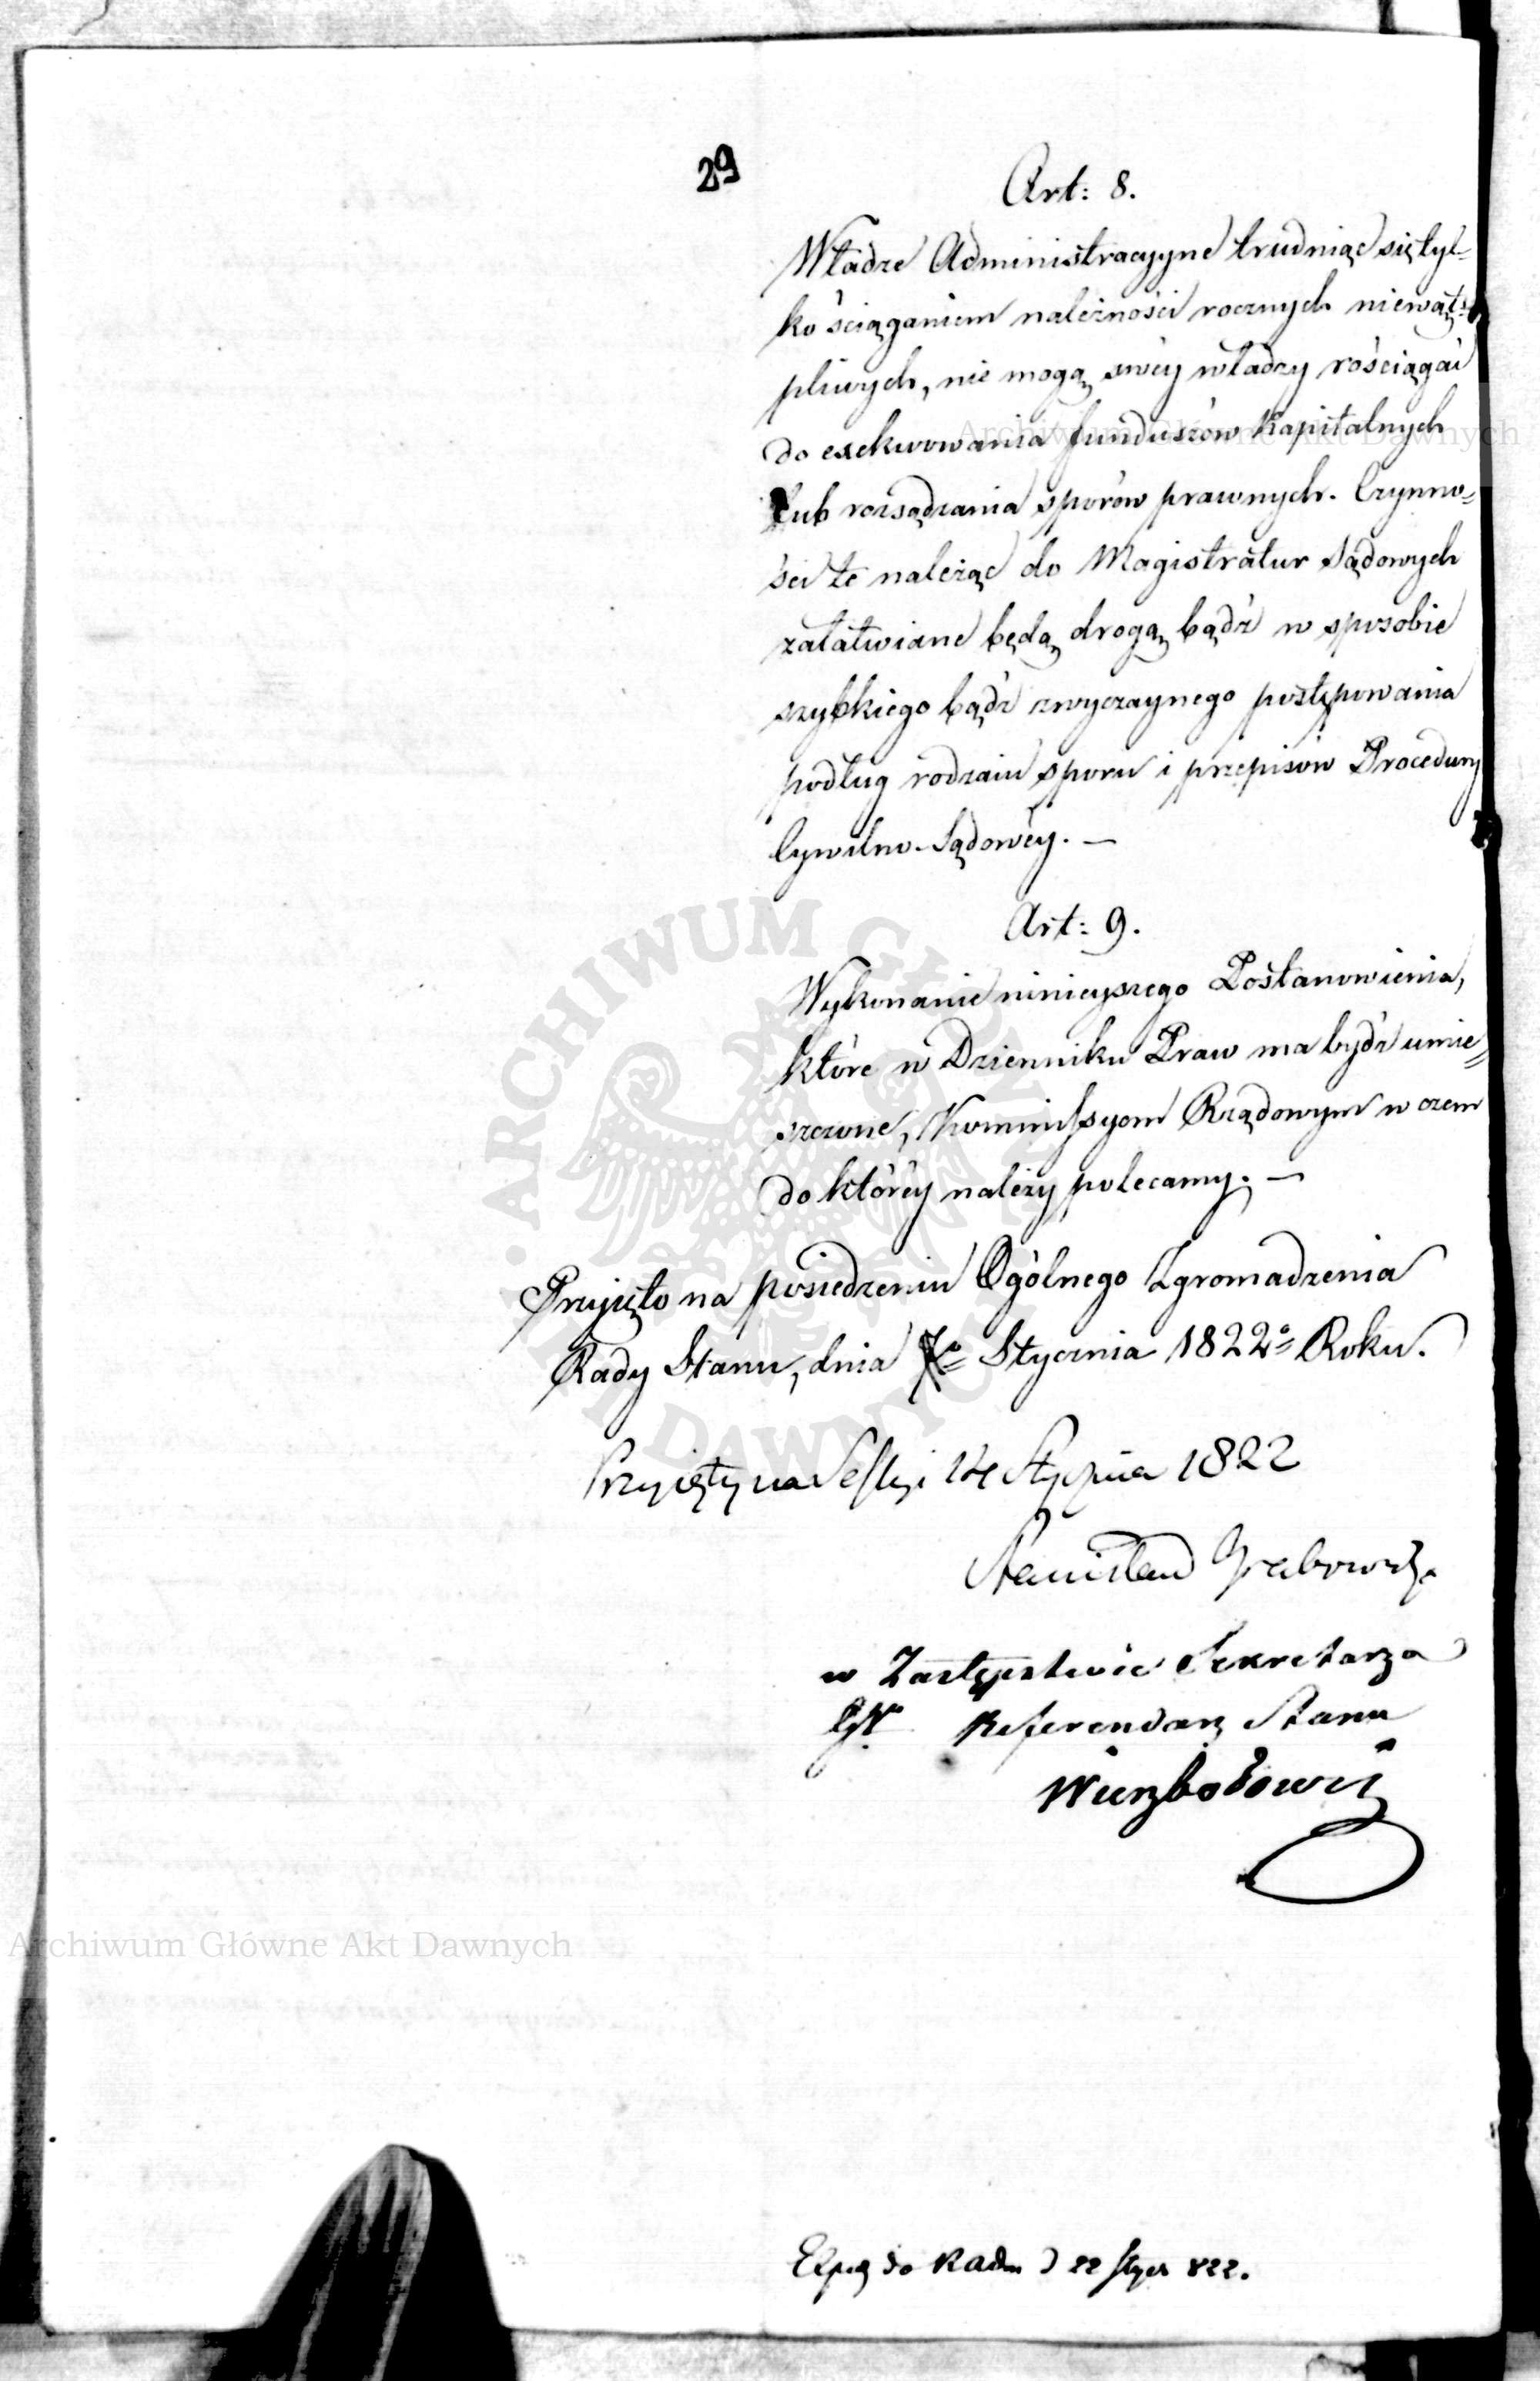 29
Art: 8.
Władze Administracyyne trudniąc się tyl=
ko ściąganiem należności rocznych niewąt=
pliwych, nie mogą swéy władzy rościągać
do exekwowania funduszów Kapitalnych
lub rozsądzania sporów prawnych. Czynno=
ści te należąc do Magistratur Sądowych
załatwiane będą drogą bądź w sposobie
szybkiego bądź zwyczaynego postępowania
podług rodzaiu sporu i przepisów Procedury
Cywilno-Sądowéy. —
Art: 9.
Wykonanie ninieyszego Postanowienia,
które w Dzienniku Praw ma bydź umie=
szczone, Kommissyom Rządowym w czem
do któréy należy polecamy. —
Przyięto na posiedzeniu Ogólnego Zgromadzenia
Rady Stanu, dnia Stycznia 1822º Roku.
Przyięty na Sessyi 14 Stycznia 1822
Stanisław Grabowski
w Zastępstwie Sekretarza
Referendarz Stanu
Wierzbołowicz
do Rady D 22 Stycz 822.
Archiwum Główne Akt Dawnych
Archiwum Główne Akt Dawnych
ARCHIWUM GŁÓWNE AKT DAWNYCH